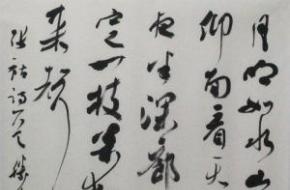 月明如水山
仰面看天
夜半深廊
定一枝松
来声
张祜诗